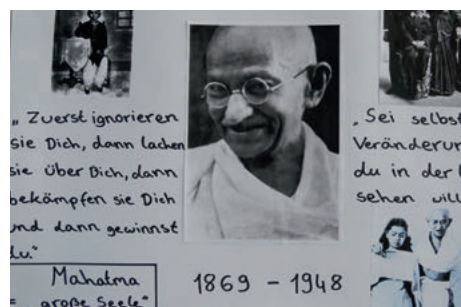 „Zuerst ignorieren
sie Dich, dann lachen
sie über Dich, dann
bekämpfen sie Dich
und dann gewinnst
du."
Mahatma
= „große Seele"
1869 – 1948
„Sei selbst
Veränderun
du in der
sehen will